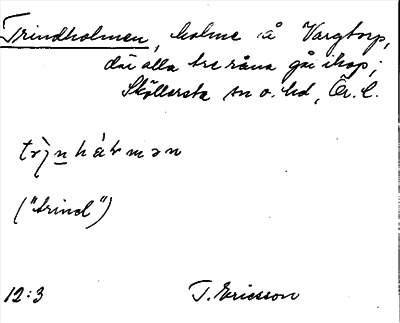 Trindholmen, holme å Vargtorp,
där alla tre råna gå ihop;
Sköllersta sn o. hd, Ör. l.
("trind")
12:3 T. Ericsson